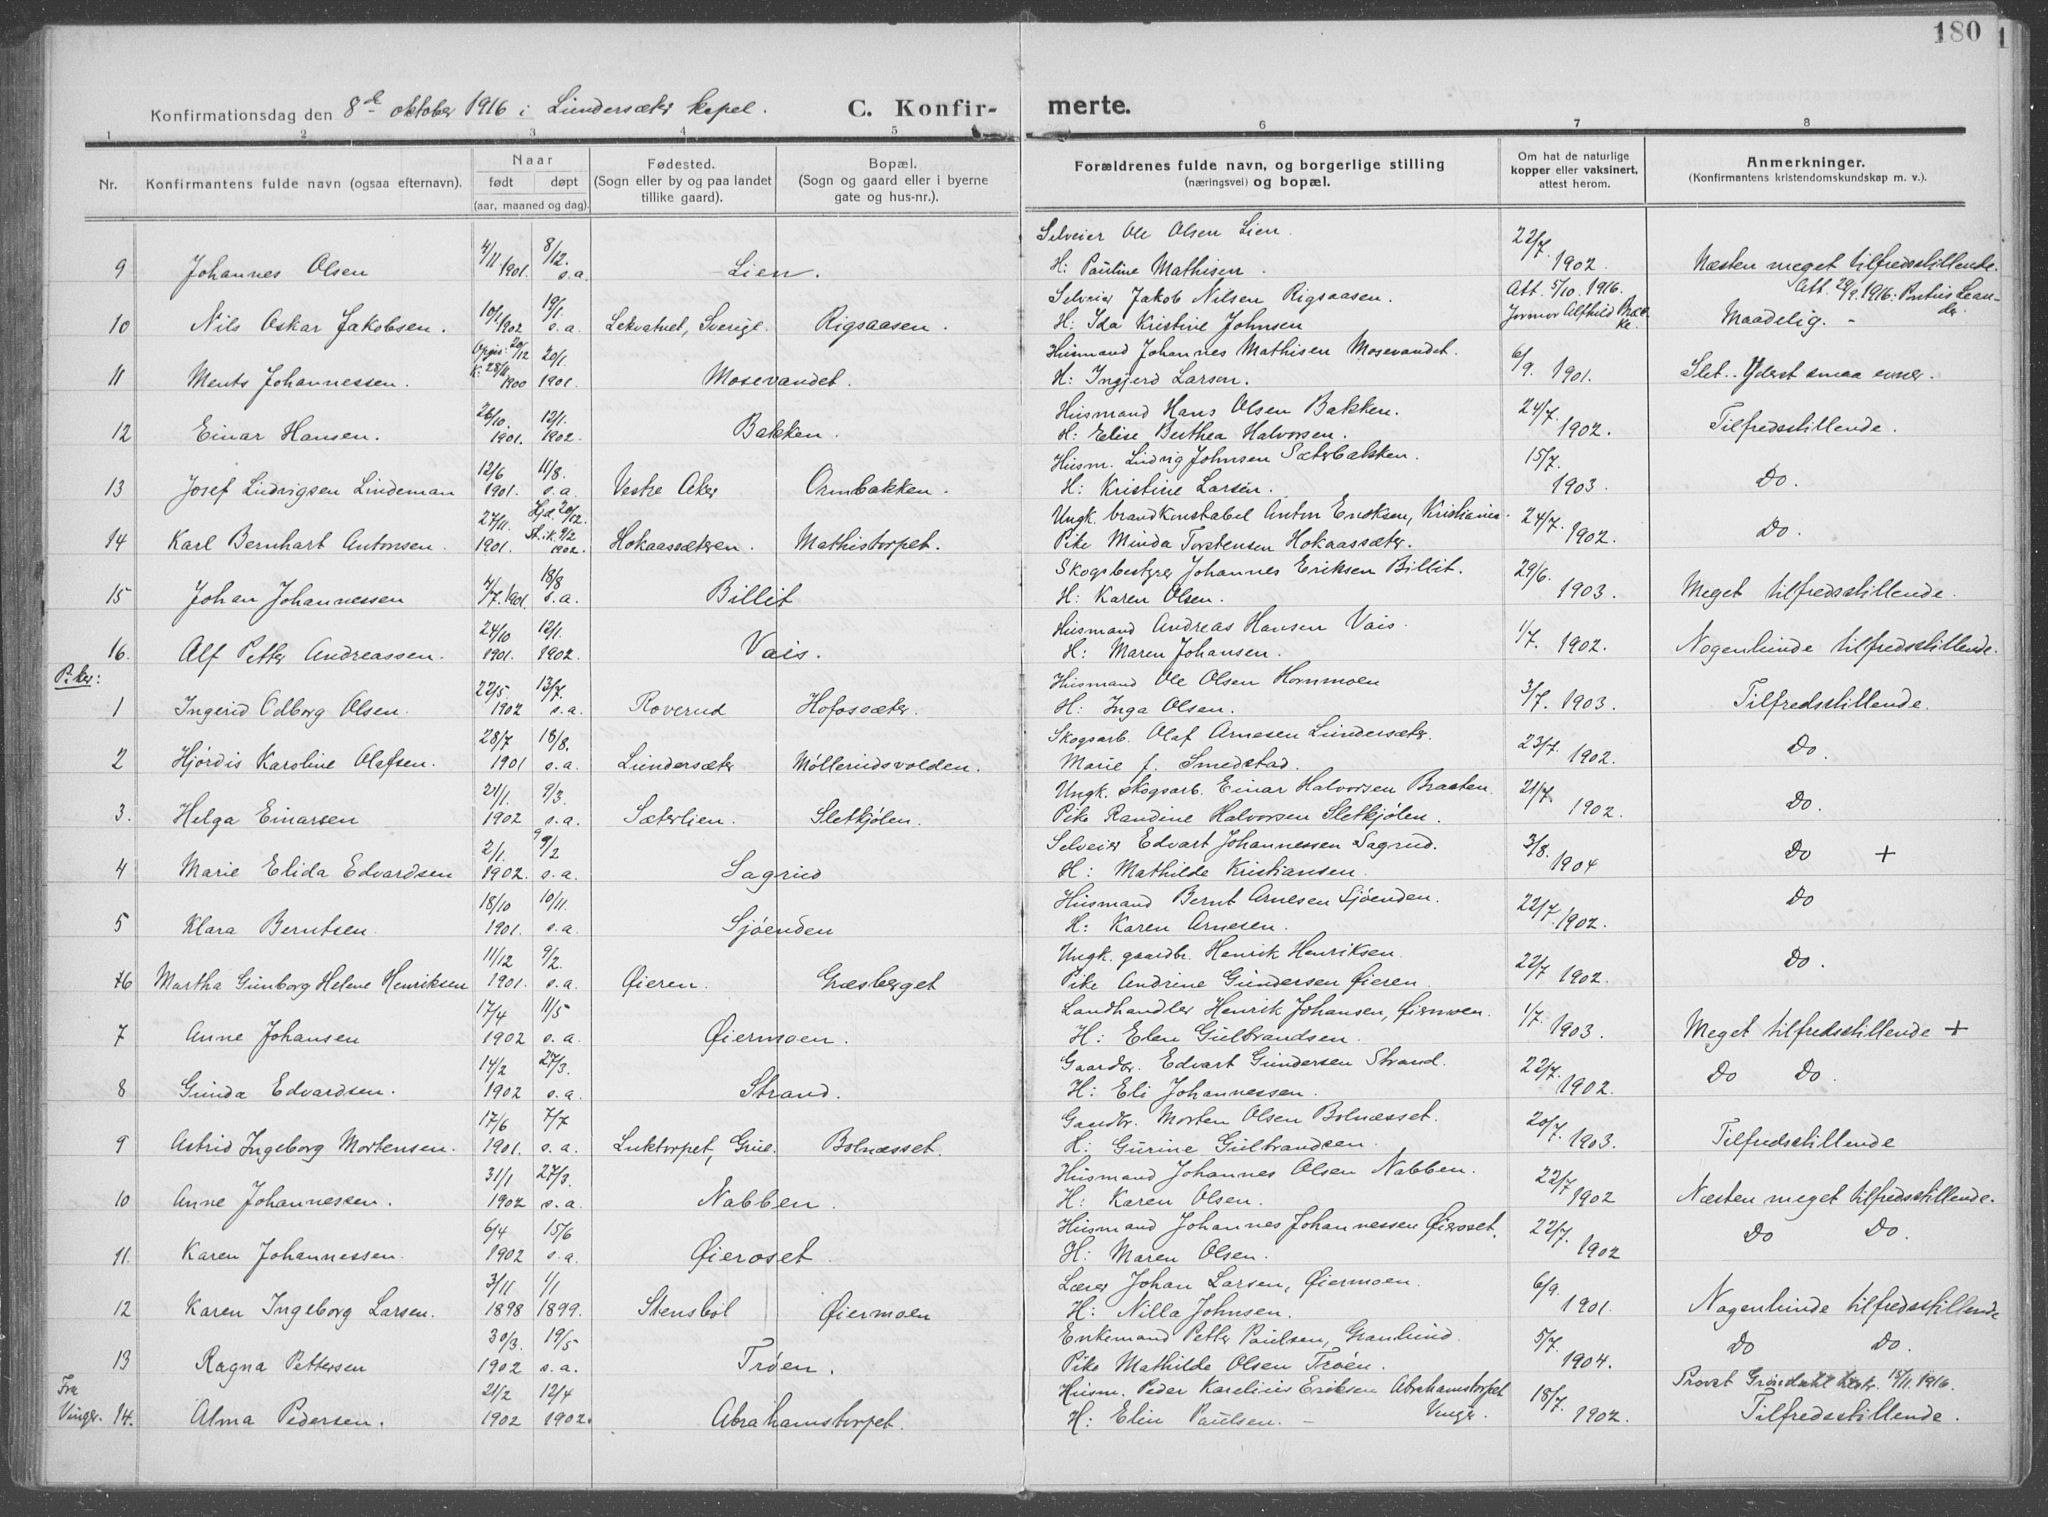 180
Konfirmationsdag den 8de oktober 1916 i Lundersæter kapel. C. Konfir- merte.
1 2 3 4 5 6 7 8
Nr. Konfirmantens fulde navn (ogsaa efternavn). Naar født døpt (aar, maaned og dag). Fødested. (Sogn eller by og paa landet tillike gaard). Bopæl. (Sogn og gaard eller i byerne gate og hus-nr.). Forældrenes fulde navn, og borgerlige stilling (næringsvei) og bopæl. Om hat de naturlige kopper eller vaksinert, attest herom. Anmerkninger. (Konfirmantens kristendomskundskap m. v.).
4/11 8/12. Selveier Ole Olsen Lien. 22/7
9 Johannes Olsen 1901. s.a. Lien. H: Pauline Mathisen. 1902. Næsten meget tilfredsstillende.
10/1 19/1. Selveier Jakob Nilsen Rigsaasen. Att. 5/10 1916. Att. 29/9 1916: Pontus Lean-
10 Nils Oskar Jakobsen. 1902 s.a. Lekvatnet, Sverige. Rigsaasen. H: Ida Kristine Johnsen Jormor Alfhild Maadelig. - der
Opgis: 20/12 K: 28/11 20/1. Husmand Johannes Mathisen Mosevandet. 6/9.
11 Ments Johannessen. 1900 1901. Mosevandet. H: Ingjerd Larsen. 1901. Slet. Yderst smaa evner.
26/10. 12/1. Husmand Hans Olsen Bakken. 24/7.
12 Einar Hansen. 1901. 1902. Bakken. H: Elise Berthea Halvorsen. 1902. Tilfredsstillende.
12/6 11/8. Husm. Ludvig Johnsen Sæterbakken. 15/7.
13 Josef Ludvigsen Lindeman 1901. s.a. Vestre Aker Ormbakken. H: Kristine Larsen. 1903. Do.
27/11. Hjd. 20/12. Ungk. brandkonstabel Anton Enoksen, Kristiania. 24/7.
14 Karl Bernhart Antonsen. 1901. St. i k. 9/2 1902. Hokaassæteren. Mathistorpet. Pike Minda Torstensen Hokaassæter. 1902. Do.
4/7. 18/8 Skogsbestyrer Johannes Eriksen Billit. 29/6.
15 Johan Johannessen 1901. s.a. Billit H: Karen Olsen. 1903. Meget tilfredsstillende.
24/10 12/1. Husmand Andreas Hansen Vais. 1/7.
16. Alf Petter Andreassen. 1901. 1902. Vais. H: Maren Johansen. 1902. Nogenlunde tilfredsstillende.
Piker:
22/5. 13/7. Husmand Ole Olsen Hornmoen 3/7.
1 Ingerid Odborg Olsen. 1902 s.a. Roverud Hofossæter. H: Inga Olsen. 1903. Tilfredsstillende.
28/7 18/8. Skogsarb. Olaf Arnesen Lundersæter. 23/7.
2 Hjørdis Karoline Olafsen. 1901 s.a. Lundersæter Møllerudsvolden. Marie f. Smedstad. 1902. Do
21/1. 9/3. Ungk. Skogsarb. Einar Halvorsen Braaten. 21/7.
3. Helga Einarsen 1902 s.a. Sæterlien. Sletkjølen. Pike Randine Halvorsen Sletkjølen. 1902. Do.
2/1. 9/2 Selveier Edvart Johannessen Sagrud. 3/8.
4 Marie Elida Edvardsen 1902. s.a. Sagrud H: Mathilde Kristiansen. 1904 Do +
18/10 10/11. Husmand Bernt Arnesen Sjøenden. 22/7.
5 Klara Berntsen. 1901. s.a. Sjøenden H: Karen Arnesen. 1902. Do
11/12 9/2. Ungk. gaardbr. Henrik Henriksen. 22/7
6 Martha Gunborg Helene Henriksen 1901. s.a. Øieren. Græsberget Pike Andrine Gundersen Øieren. 1902. Do.
17/4 11/5 Landhandler Henrik Johansen, Øiermoen. 1/7.
7 Anne Johansen 1902 s.a. Øiermoen. H: Elen Gulbrandsen. 1903. Meget tilfredsstillende +
14/2 27/3. Gaardbr. Edvart Gundersen Strand. 22/7.
8 Gunda Edvardsen. 1902 s.a. Strand. H: Eli Johannessen. 1902. Do Do.
17/6 7/7 Gaardbr. Morten Olsen Bolnæsset. 20/7.
9 Astrid Ingeborg Mortensen. 1901. s.a. Luktorpet, Grue. Bolnæsset. H: Gurine Gulbrandsen. 1903. Tilfredsstillende
31/1 27/3. Husmand Johannes Olsen Nabben. 22/7
10 Anne Johannessen. 1902 s.a. Nabben. H: Karen Olsen. 1902 Næsten meget tilfredsstillende.
6/4 15/6 Husmand Johannes Johannessen Øieroset. 22/7.
11. Karen Johannessen. 1902 s.a. Øieroset H: Maren Olsen. 1902 Do Do.
3/11 1/1 Lærer Johan Larsen, Øiermoen. 6/9.
12 Karen Ingeborg Larsen. 1898 1899. Stensbøl Øiermoen H: Nilla Johnsen. 1901. Nogenlunde tilfredsstillende
30/3. 19/5 Enkemand Petter Paulsen, Granlund. 5/7.
13 Ragna Pettersen 1902 s.a. Trøen. Pike Mathilde Olsen Trøen. 1904. Do Do.
Fra 21/2 12/4 Husm. Peder Karelius Eriksen Abrahamstorpet 18/7. Provst Grøndahl 18/11. 1916.
Vinger. 14. Alma Pedersen. 1902 1902. Abrahamstorpet. H: Elin Paulsen. - Vinger. 1902. Tilfredsstillende.